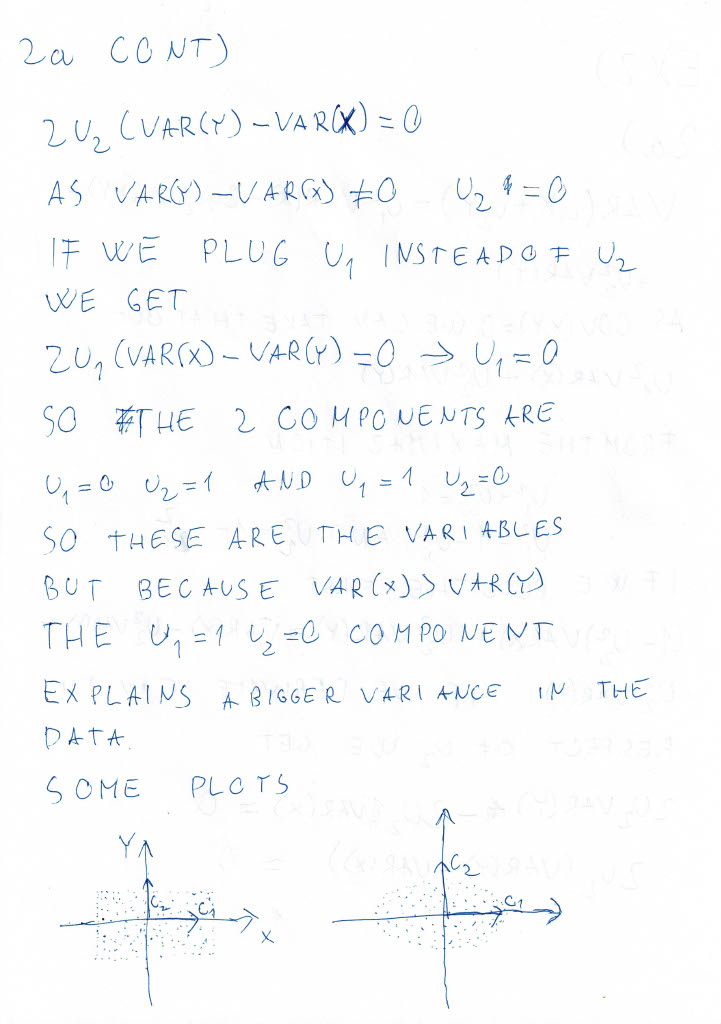 2a CONT)
2U₂(VAR(Y)-VAR(X)=0
AS VAR(Y)-VAR(X)≠0 U₂=0
IF WE PLUG U₁ INSTEAD OF U₂
WE GET
2U₁(VAR(X)-VAR(Y)=0 → U₁=0
SO THE 2 COMPONENTS ARE
U₁=0 U₂=1 AND U₁=1 U₂=0
SO THESE ARE THE VARIABLES
BUT BECAUSE VAR(X)>VAR(Y)
THE U₁=1 U₂=0 COMPONENT
EXPLAINS A BIGGER VARIANCE IN THE
DATA.
SOME PLOTS
Y
C₂
C₁
X
C₂
C₁